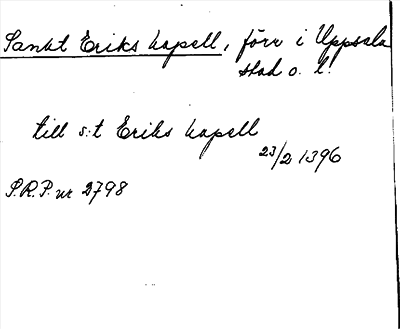 Sankt Eriks kapell, förr i Uppsala
stad o. l.
till s:t Eriks kapell
23/2 1396
S.R.P. nr 2798